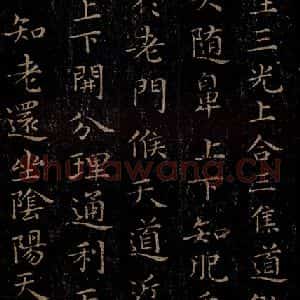 三光上合三焦道
隨鼻上下知肥
於老門候天道近
上下開分理通利
知老還坐陰陽天
Shufawang.CN